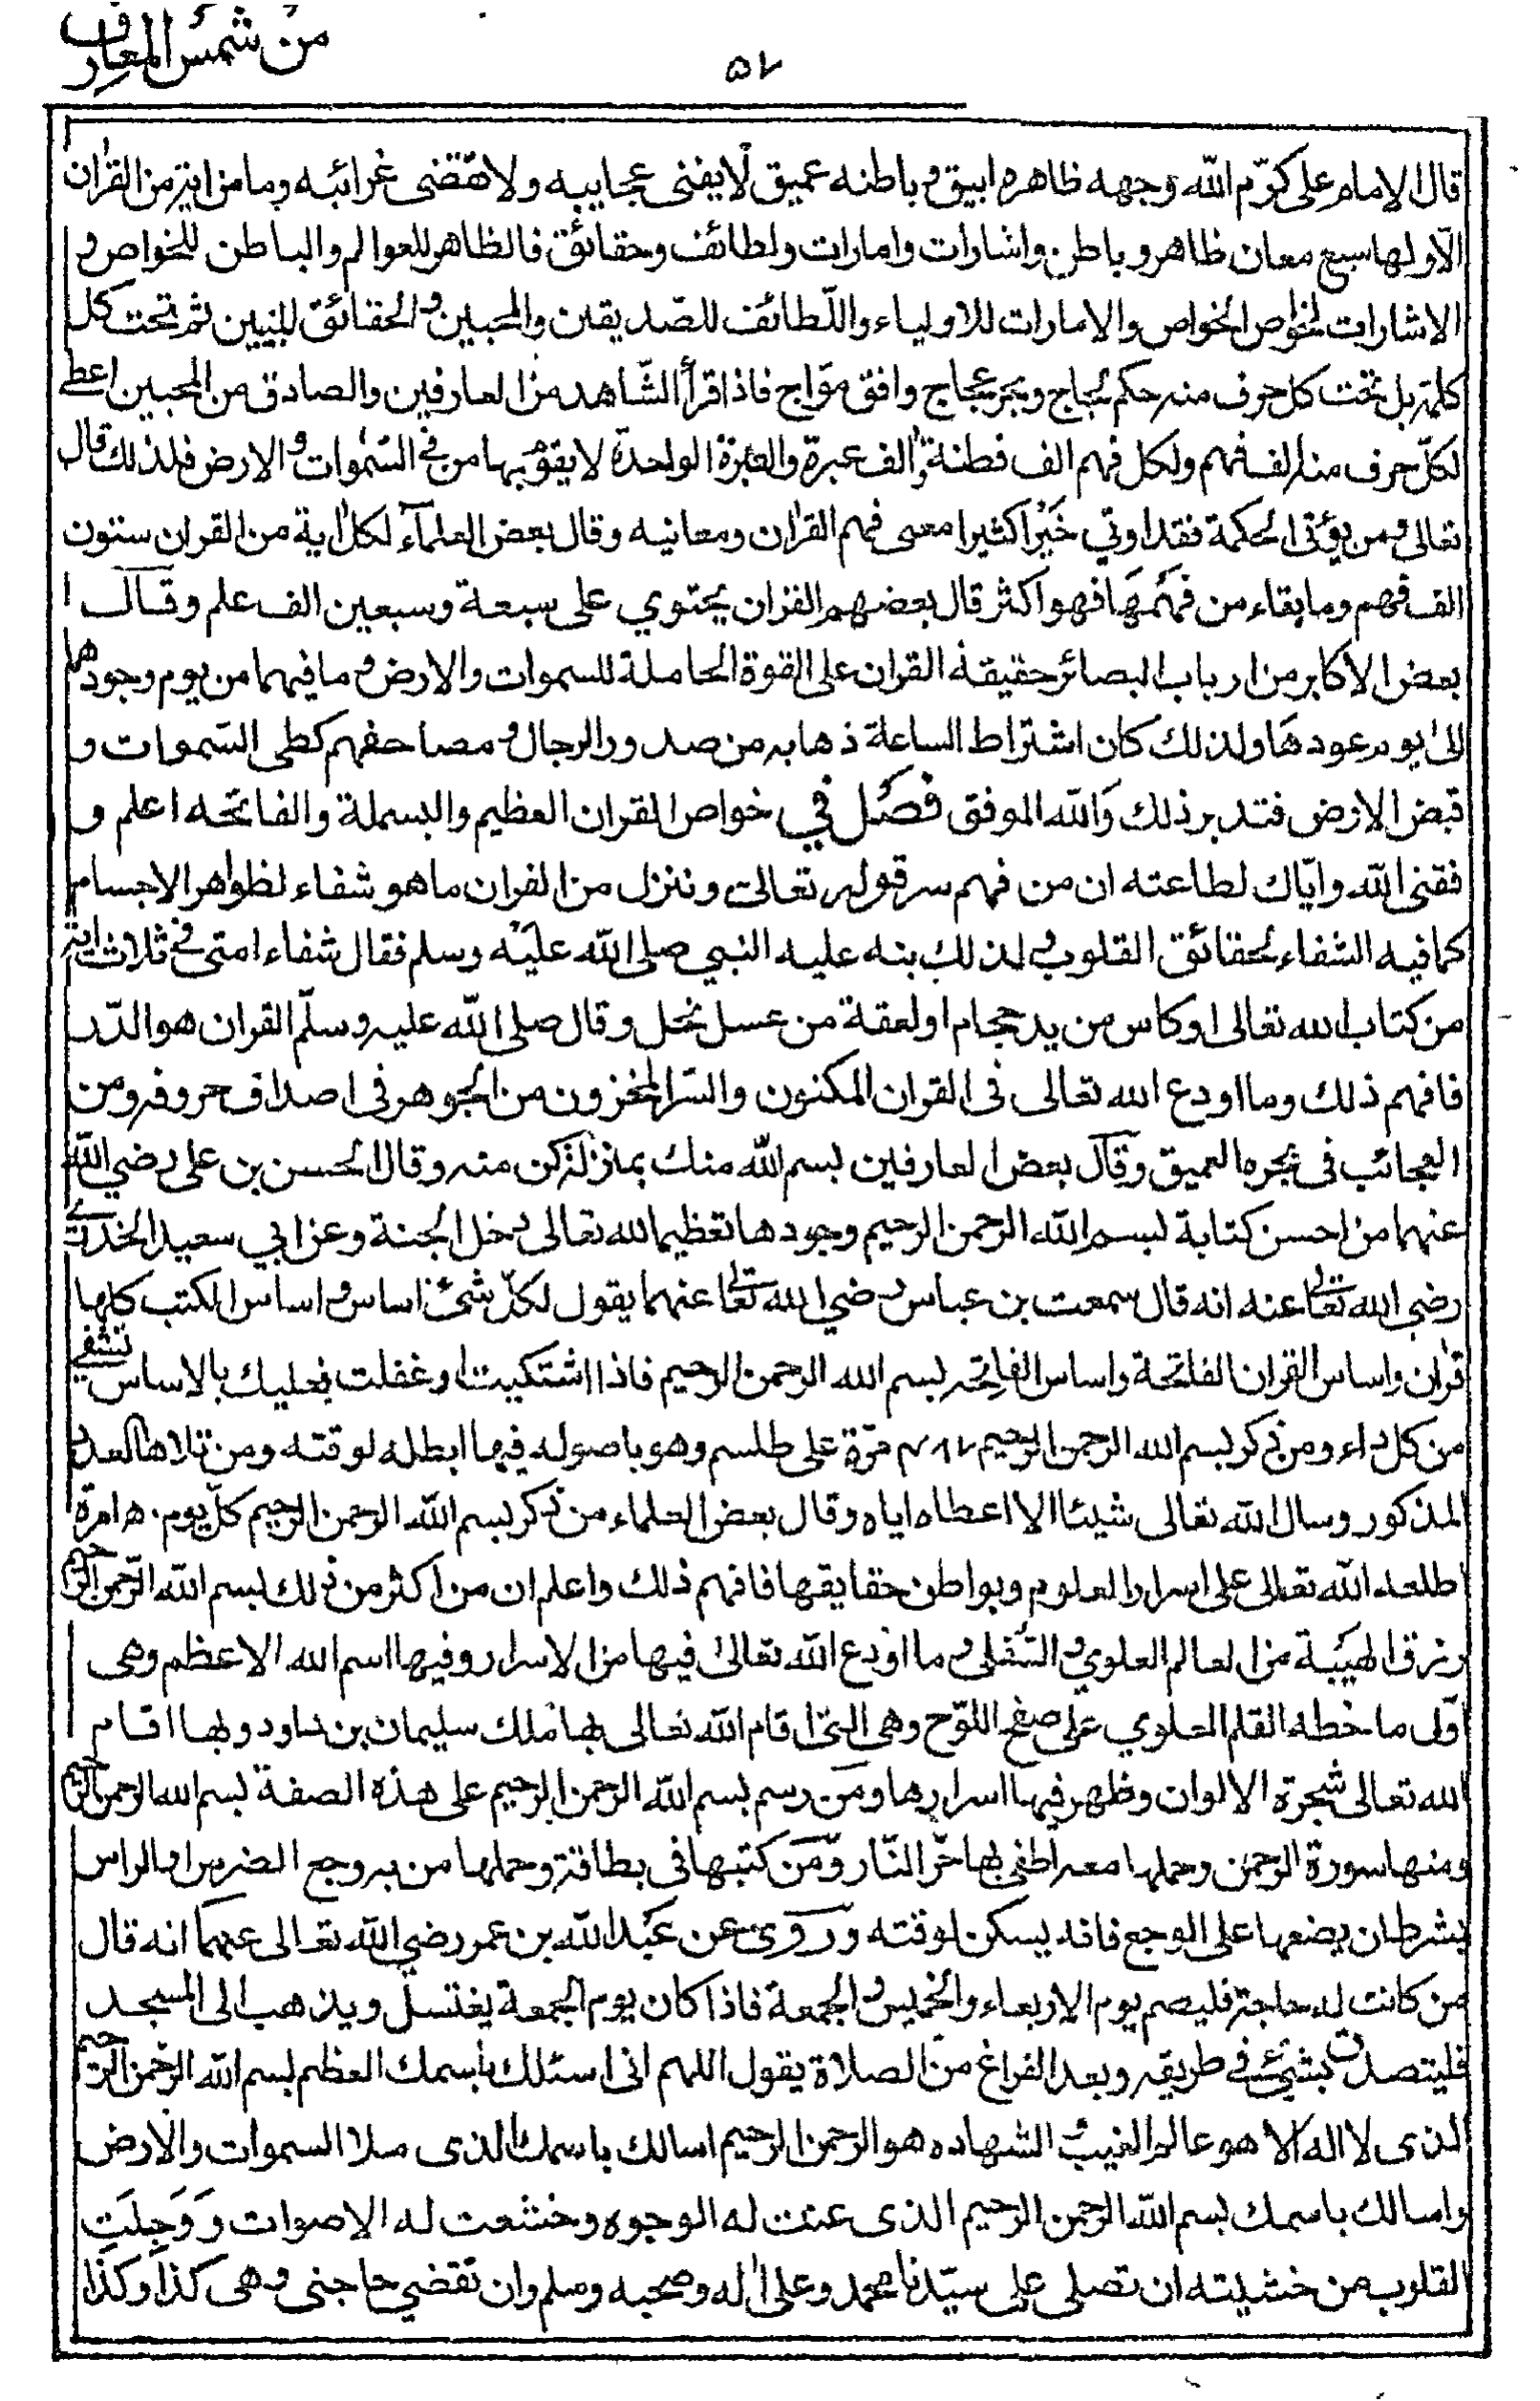 من شمس المعارف
٥٧
قال الامام على كرّم الله وجهه ظاهره ابيق و باطنه عميق لا يفنى عجايبه ولا تنقضى غرائبه وما من اية من القران
الّا ولها سبع معان ظاهر و باطن واشارات وامارات ولطائف وحقائق فالظاهر للعوالم والباطن للخواص و
الاشارات لخواص الخواص والامارات للاولياء واللّطائف للصّديقين والمحبين و الحقائق للنبيين ثم تحت كل
كلمة بل تحت كل حرف منه حكم ثجاج وبحر عجاج وافق موّاج فاذا قرأ الشّاهد من العارفين والصادق من المحبين اعطى
لكلّ حرف منه الف فهم ولكل فهم الف فطنة والف عبرة والعبرة الواحدة لا يقوم بها من فى السّموات و الارض فلذلك قال
تعالى و من يؤتى الحكمة فقد اوتي خَيْرًا كثيرا معنى فهم القران ومعانيه وقال بعض العلماء لكل اية من القران ستون
الف فهم وما بقاء من فَهْمَهَا فهو اكثر قال بعضهم القران يحتوي على سبعة وسبعين الف علم وقال ا
بعض الاكابر من ارباب البصائر حقيقة القران على القوة الحاملة للسموات والارض و ما فيهما من يوم وجودهما
الى يوم عودها ولذلك كان اشتراط الساعة ذهابه من صدور الرجال و مصاحفهم كطى السّموات و
قبض الارض فتدبر ذلك وَالله الموفق فصل في خواص القران العظيم والبسملة والفاتحه اعلم و
فقنى الله وايّاك لطاعته ان من فهم سر قوله تعالى وننزل من القران ما هو شفاء لظواهر الاجسام
كما فيه الشفاء لحقائق القلوب و لذلك بنه عليه النبي صلى الله عليه وسلم فقال شفاء امتى فى ثلاث اية
من كتاب الله تعالى او كاس من يد حجام او لعقة من عسل نحل وقال صلى الله عليه وسلّم القران هو الدّر
فافهم ذلك وما اودع الله تعالى فى القران المكنون والسّر المخزون من الجوهر فى اصداف حروفه ومن
العجائب فى بحره العميق وقال بعض العارفين بسم الله منك بمنزلة كن منه وقال الحسن بن على رضي الله
عنهما من احسن كتابة لبسم الله الرحمن الرحيم وجودها تعظيما لله تعالى دخل الجنة وعن ابي سعيد الخدري
رضي الله تعالى عنه انه قال سمعت بن عباس رضي الله تعالى عنهما يقول لكلّ شئ اساس و اساس الكتب كلها
قران واساس القران الفاتحة واساس الفاتحة بسم الله الرحمن الرحيم فاذا اشتكيت او غفلت فعليك بالاساس تشفى
من كل داء ومن ذكر بسم الله الرحمن الرحيم ٧٨٦ مرّة على طلسم وهو باصوله فيها ابطله لوقته ومن تلاها العدد
المذكور وسال الله تعالى شيئا الا اعطاه اياه وقال بعض العلماء من ذكر بسم الله الرحمن الرحيم كلّ يوم مرة
اطلعه الله تعالى على اسرار العلوم وبواطن حقايقها فافهم ذلك واعلم ان من اكثر من ذلك بسم الله الرّحمن الرّحيم
رزق الهيبة من العالم العلوي و السّفلى و ما اودع الله تعالى فيها من الاسرار وفيها اسم الله الاعظم وهى
اوّل ما خطه القلم العلوي على صفح اللوّح وهى التى اقام الله تعالى بها ملك سليمان بن داود وبها اقام
الله تعالى شجرة الالوان وظهر فيها اسرارها ومن رسم بسم الله الرحمن الرحيم على هذه الصفة بسم الله الرحمن الرحيم
ومنها سورة الرحمن وحملها معه اطفى بها حرّ النّار ومن كتبها فى بطاقة وحملها من به وجع الضرس او الراس
بشرط ان يضعها على الوجع فانه يسكن لوقته وروى عن عبد الله بن عمر رضي الله تعالى عنهما انه قال
من كانت له حاجة فليصم يوم الاربعاء والخميس و الجمعة فاذا كان يوم الجمعة يغتسل ويذهب الى المسجد
فليتصدق بشئ فى طريقه وبعد الفراغ من الصلاة يقول اللهم انى اسئلك باسمك العظم بسم الله الرحمن الرحيم
الذى لا اله الا هو عالم الغيب و الشهاده هو الرحمن الرحيم اسالك باسمك الذى ملا السموات والارض
واسالك باسمك بسم الله الرحمن الرحيم الذى عنت له الوجوه وخشعت له الاصوات و وَجِلَتِ
القلوب من خشيته ان تصلى على سيّدنا محمد وعلى اله وصحبه وسلم وان تقضي حاجتى وهى كذا وكذا